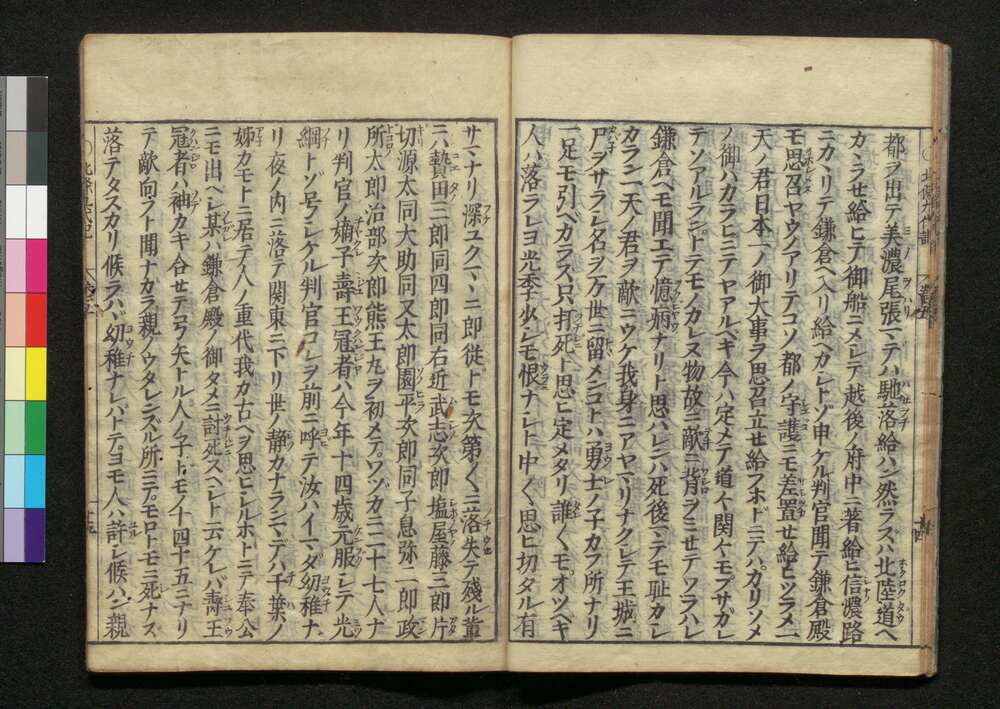 都ヲ出テ美濃尾張マテハ馳落給ハン然ラズハ北陸道ヘ
カヽラせ給ヒテ御船ニメレテ越後ノ府中ニ著給ヒ信濃路
ニカヽリテ鎌倉ヘ入リ給ヘカレトゾ申ケル判官聞テ鎌倉殿
モ思召ヤウノアリテコソ都ノ守護ニモ差置せ給ヒツラメ一
天ノ君日本一ノ御大事ヲ思召立せ給フホドニテハカリソメ
ノ御ハカラヒニテヤアルベキ今ハ定メテ道々関々モフサガレ
テソアルランドテモノカレヌ物故ニ敵ニ背ヲミせテソヲハレ
鎌倉ヘモ聞エテ憶病ナリト思ハレンハ死後マテモ耻カレ
カラン一天ノ君ヲ敵ニウケ我身ニアヤマリナクレテ王城ニ
尸ヲサラレ名ヲ万世ニ留メンコトハ勇士ノ子カフ所ナリ
一足モ引ベカラス只打死ト思ヒ定メタリ誰々モオツベキ
人ハ落ラレヨ光季少レモ恨ナレト中々思ヒ切タル有
サマナリ深ユクマヽニ郎従トモ次第々々ニ落失テ残ル輩
ニハ贄田三郎同四郎同右近武志次郎塩屋藤三郎片
切源太同大助同又太郎園平次郎同子息弥二郎政
所太郎治部次郎熊王丸ヲ初メテワヅカニ二十七人ナ
リ判官ノ嫡子壽王冠者ハ今年十四歳元服レテ光
綱トゾ号レケル判官コレヲ前ニ呼テ汝ハイマダ幼稚ナ
リ夜ノ内ニ落テ関東ニ下リ世ノ静カナランマデハ千葉ノ
姉カモトニ居テ人ノ重代我カ古ヘヲ思ヒレルホトニテ奉公
ニモ出ヘレ某ハ鎌倉殿ノ御タメニ討死スヘレト云ケレバ壽王
冠者ハ袖カキ合せテ弓矢トル人ノ子トモノ十四十五ニナリ
テ敵向フト聞ナカラ親ノウタレンズル所ニテモロトモニ死ナズ
落テタスカリ候ラハヽ幼稚ナレバトテヨモ人ハ許レ候ハン親